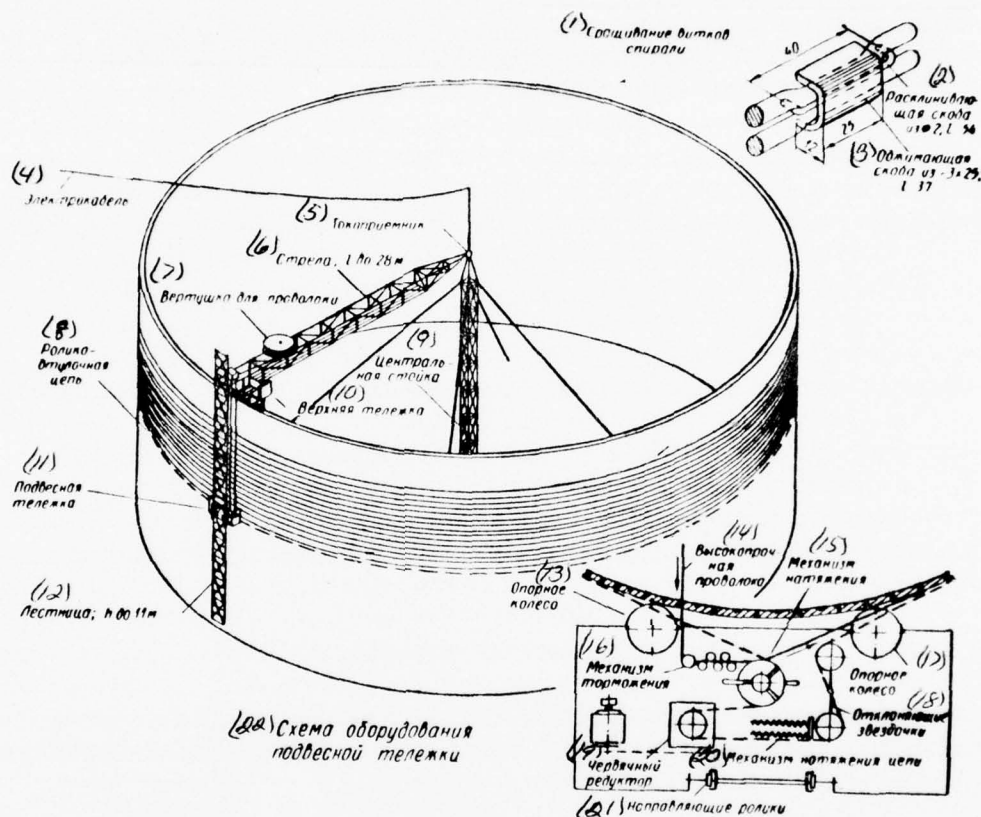 (1) Сращивание витков
спирали
60
(2)
Расклинивающая
щая скоба
из ф2, l 56
25
(3) Обжимающая
скоба из -3×25,
l 37
(4)
Электрокабель
(5) Токоприемник
(6) Стрела, l до 28 м
(7)
Вертушка для проволоки
(8)
Ролико-
втулочная
цепь
(9)
Централь-
ная стойка
(10)
Верхняя тележка
(11)
Подвесная
тележка
(12)
Лестница; h до 11 м
(13)
Опорное
колесо
(14)
Высокопроч
ная
проволока
(15)
Механизм
натяжения
(16)
Механизм
торможения
(17)
Опорное
колесо
(18)
Отклоняющие
звездочки
(19)
Червячный
редуктор
(20) Механизм натяжения цепи
(21) Направляющие ролики
(22) Схема оборудования
подвесной тележки